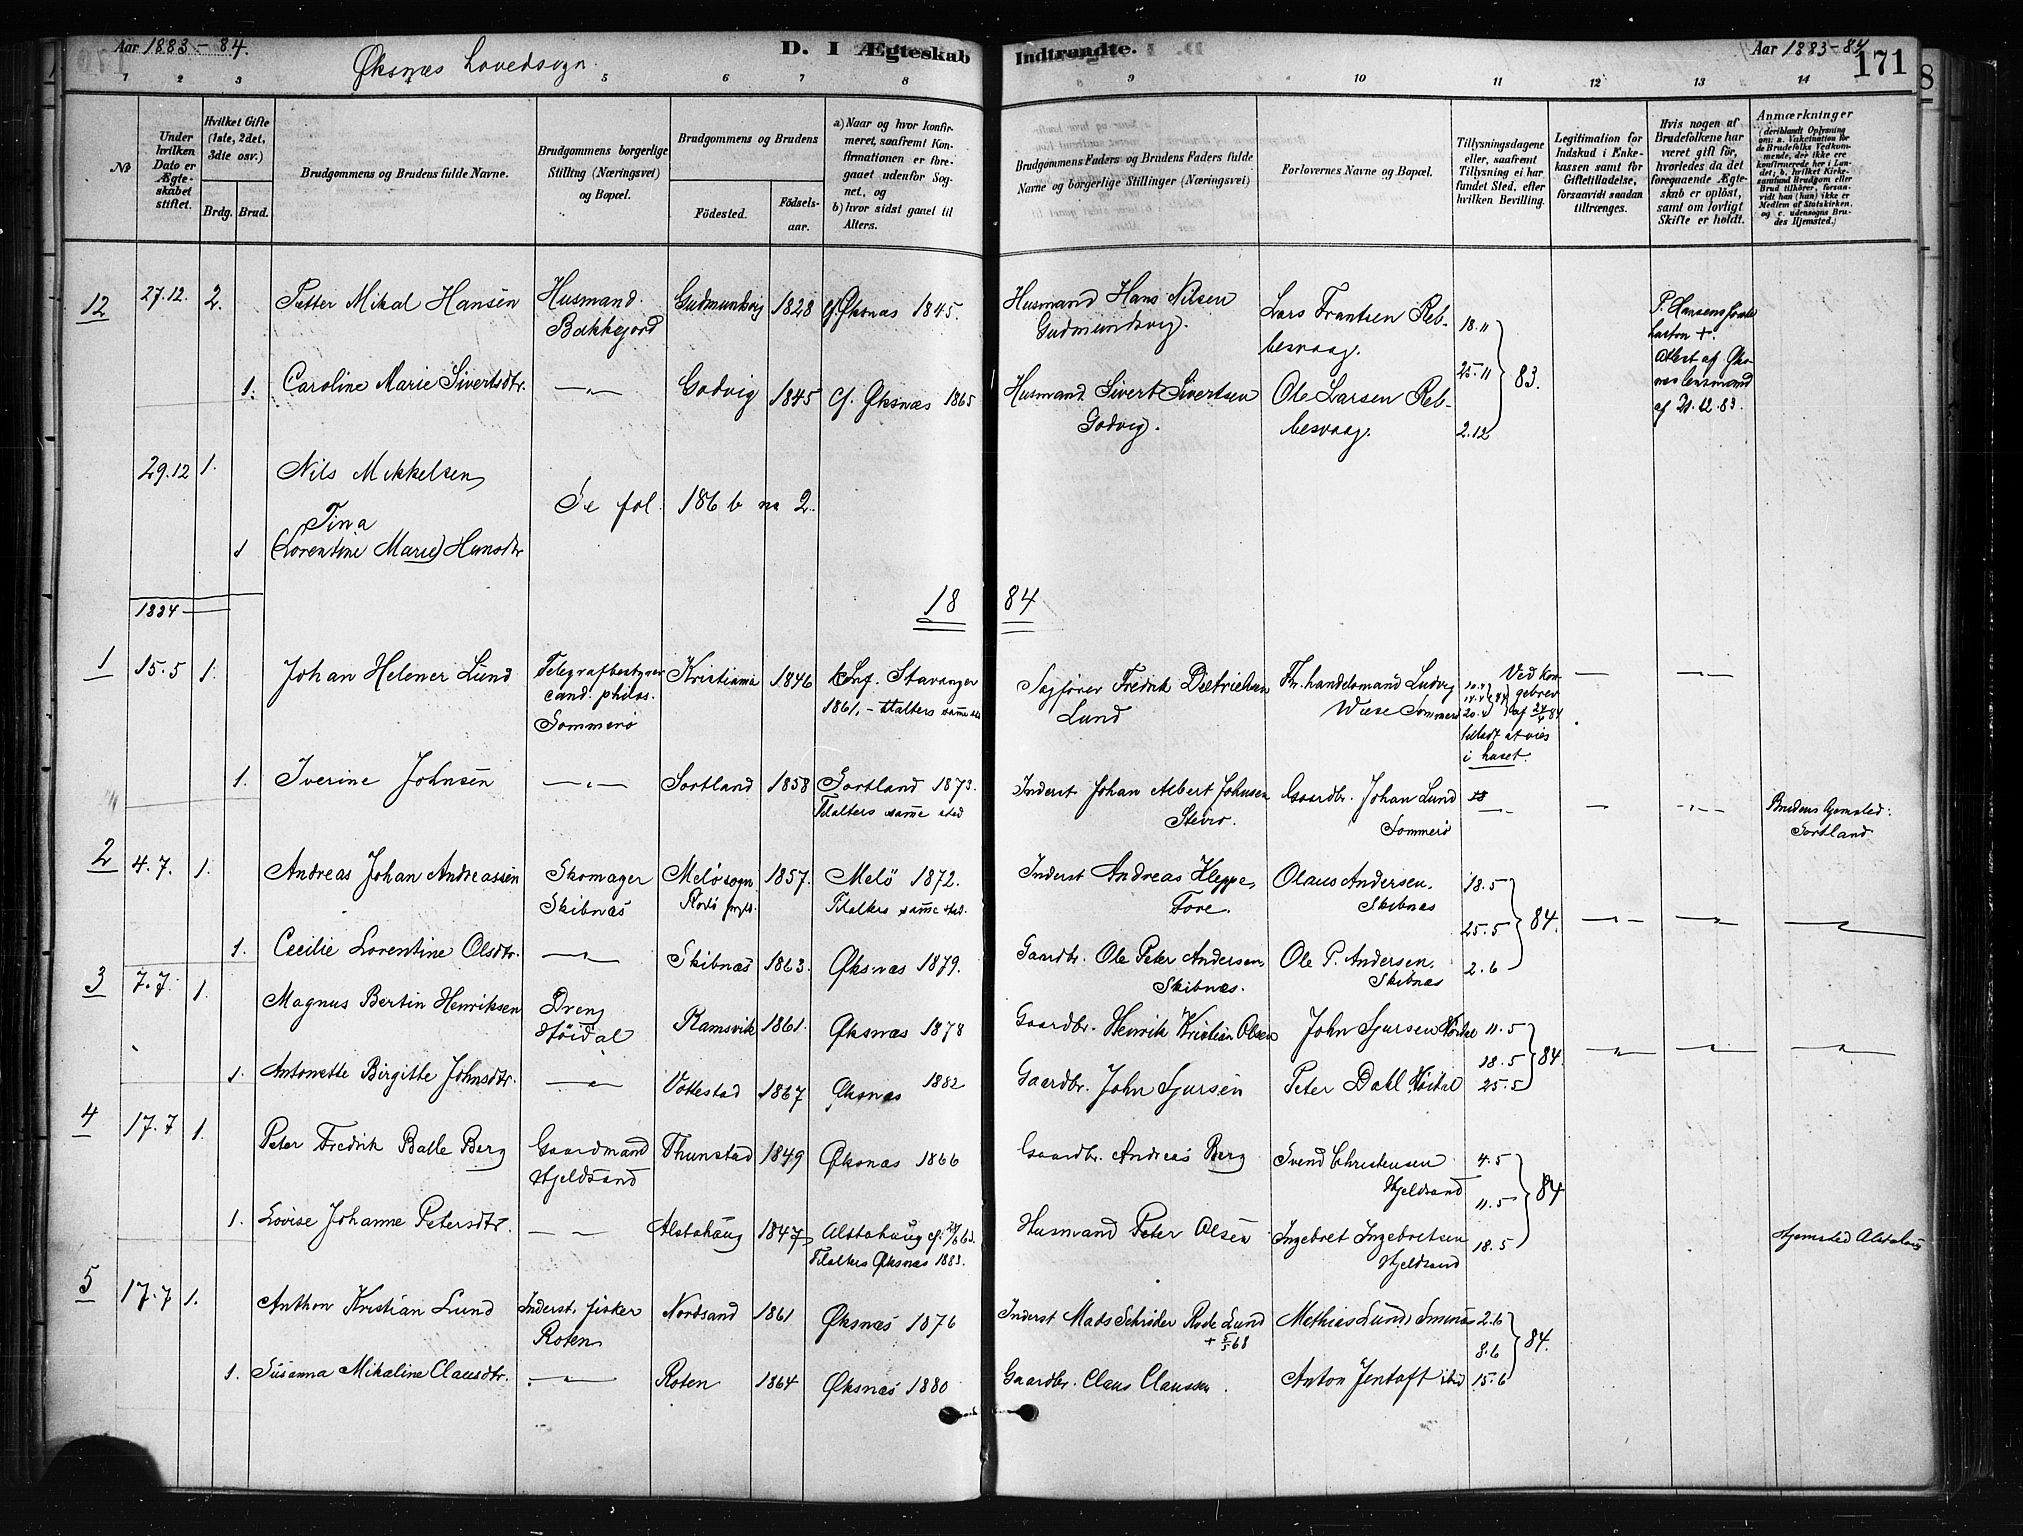 Aar 1883-84.
Øksnæs Hovedsogn.
D. I Ægteskab Indtraadte.
Aar 1883-84
171
1 2 3 5 6 7 8 9 10 11 12 13 14
No
Under hvilken Dato er Ægteskabet stiftet.
Hvilket Gifte (1ste, 2det, 3die osv.)
Brdg. Brud.
Brudgommens og Brudens fulde Navne.
Brudgommens borgerlige Stilling (Næringsvei) og Bopæl.
Brudgommens og Brudens
Fødested.
Fødselsaar.
a) Naar og hvor konfirmeret, saafremt Konfirmationen er foregaaet udenfor Sognet, og
b) hvor sidst gaaet til Alters.
Brudgommens Faders og Brudens Faders fulde Navne og borgerlige Stillinger (Næringsvei)
Forlovernes Navne og Bopæl.
Tillysningsdagene eller, saafremt Tillysning ei har fundet Sted, efter hvilken Bevilling.
Legitimation for Indskud i Enkekassen samt for Giftetilladelse, forsaavidt saadan tiltrænges.
Hvis nogen af Brudefolkene har været gift før, hvorledes da det foregaaende Ægteskab er opløst, samt om lovligt Skifte er holdt.
Anmærkninger
(deriblandt Oplysning om: a. Vakcination for de Brudefolks Vedkommende, der ikke ere konfirmerede her i Landet; b. hvilket Kirkesamfund Brudgom eller Brud tilhører, forsaavidt han (hun) ikke er Medlem af Statskirken, og c. udensogns Brudes Hjemsted.)
12 27.12. 2. Petter Mikal Hansen Husmand Gudmundsvig 1828 cf. Øksnæs 1845. Husmand Hans Nilsen Lars Frantsen Reb- 18.11
Bakkejord Gudmundsvig. besvaag.
P. Hansens
+.
Attest af Øks-
næs lensmand
af 21.12.83.
1. Caroline Marie Sivertsdtr. —„— Godvig 1845 cf. Øksnæs 1865 Husmand Sivert Sivertsen Ole Larsen Reb- 25.11 83.
Godvig. besvaag. 2.12
29.12 1. Nils Mikkelsen
Se fol. 186 b no 2.
Tina
1 (Lorentine Marie) Hansdtr
1884
18 84
1 15.5 1. Johan Helener Lund Telegrafbestyrer Kristiania 1846 Conf. Stavanger Sagfører Fredrik Dietrichsen Fhr. handelsmand Ludvig Ved Kon-
cand. philos. 1861, - Lund Wiese Sommerø gebrev
Sommerø 20.4 af 24/4 84
tilladt at vies
i huset.
1. Iverine Johnsen —„— Sortland 1858 Sortland 1873. Inderst Johan Albert Johnsen Gaardbr. Johan Lund
Til alters samme sted Stevrø. Sommerø
Brudens hjemsted:
Sortland
2 4.7. 1. Andreas Johan Andreassen Skomager Melø sogn 1857. Melø 1872. Inderst Andreas Kleppe, Olaus Andersen. 18.5
Skibnæs Rødø prgtd. Til alters samme sted. Fore. Skibnæs 25.5 84.
1. Cecilie Lorentine Olsdtr. —„— Skibnæs 1863. Øksnæs 1879. Gaardbr. Ole Peter Andersen Ole P. Andersen. 2.6
Skibnæs. Skibnæs
3 7.7. 1. Magnus Bertin Henriksen Dreng Ramsvik 1861. Øksnæs 1878 Gaardbr. Henrik Kristian Olsen John Sjursen Høidal 11.5
Høidal 18.5 84.
1. Antonette Birgitte Johnsdtr. —„— Vottestad 1867 Øksnæs 1882 Gaardbr. John Sjursen Peter Dahl Høidal 25.5
4 17.7 1. Peter Fredrik Balle Berg Gaardmand Thunstad 1849 Øksnæs 1866 Gaardbr. Andreas Berg Svend Christensen 4.5
Hjeldsand Hjeldsand 11.5 84
1. Lovise Johanne Petersdtr. —„— Alstahaug 1847 Alstahaug Husmand Peter Olsen Ingebret Ingebretsen 18.5
Til alters Øksnæs 1883. Hjeldsand
Hjemsted Alstahaug
5 17.7 1. Anthon Kristian Lund Inderst, fisker Nordsand 1861 Øksnæs 1876 Inderst Mads Schrøder Rode Lund Mathias Lund, Smines 2.6
Roten 8.6 84.
1. Susanna Mikaline Clausdtr. —„— Roten 1864 Øksnæs 1880 Gaardbr. Claus Clausen. Anton Jentoft ibid 15.6